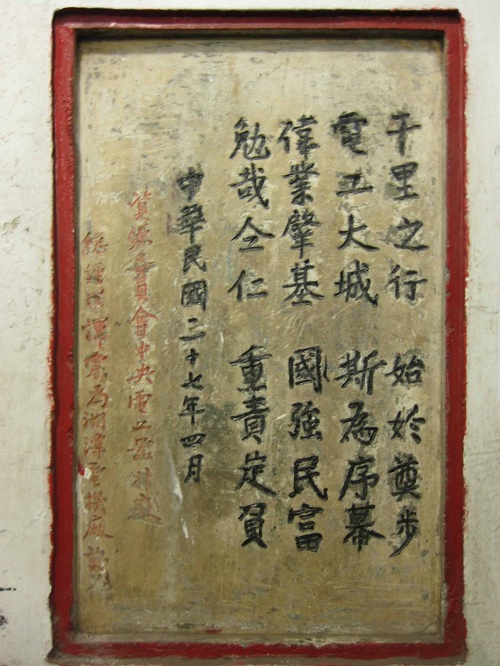 千里之行　始於奠步
電工大城　斯為序幕
偉業肇基　國強民富
勉哉仝仁　重責是負
中華民國三十七年四月
資源委員會中央電工器材廠
總經理惲震為湘潭電機廠